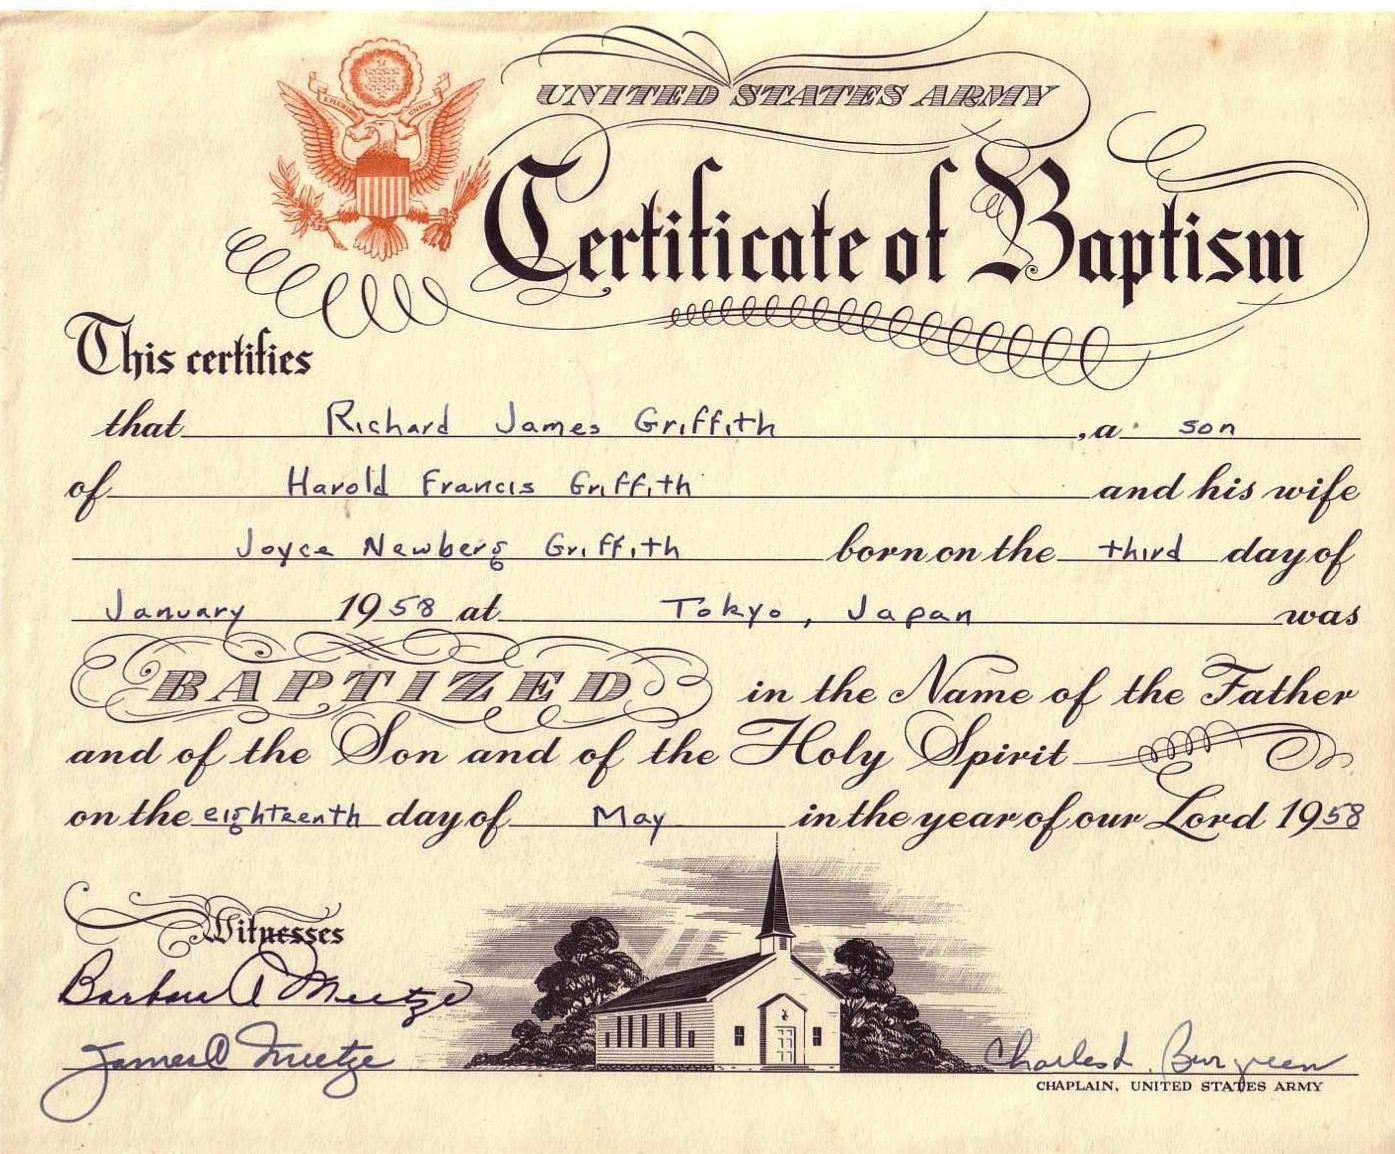 E PLURIBUS UNUM
UNITED STATES ARMY
Certificate of Baptism
This certifies
that Richard James Griffith , a son
of Harold Francis Griffith and his wife
Joyce Newberg Griffith born on the third day of
January 1958 at Tokyo, Japan was
BAPTIZED in the Name of the Father
and of the Son and of the Holy Spirit
on the eighteenth day of May in the year of our Lord 1958
Witnesses
Barbara A Meetze
James C Meetze
Charles L. Burgreen
CHAPLAIN, UNITED STATES ARMY